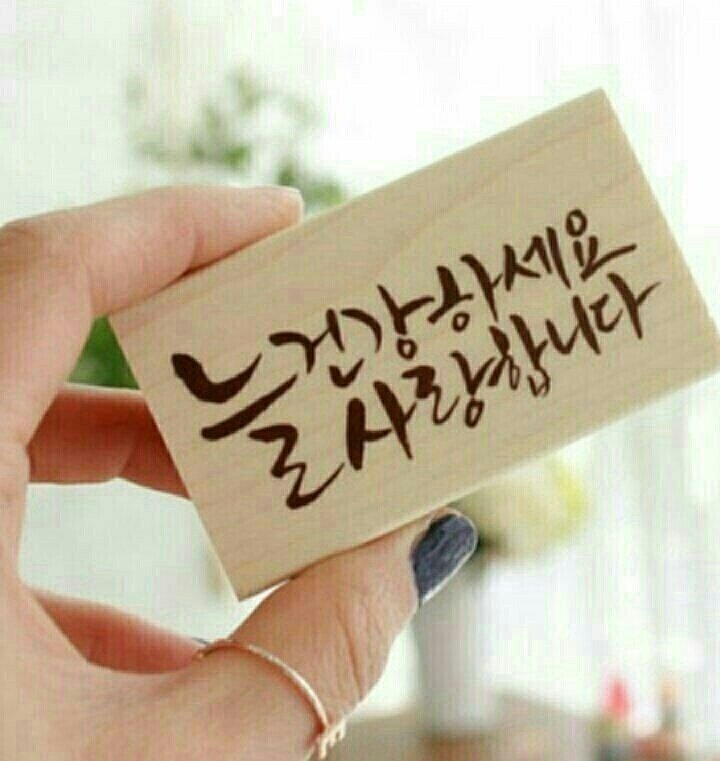 늘 건강하세요
사랑합니다